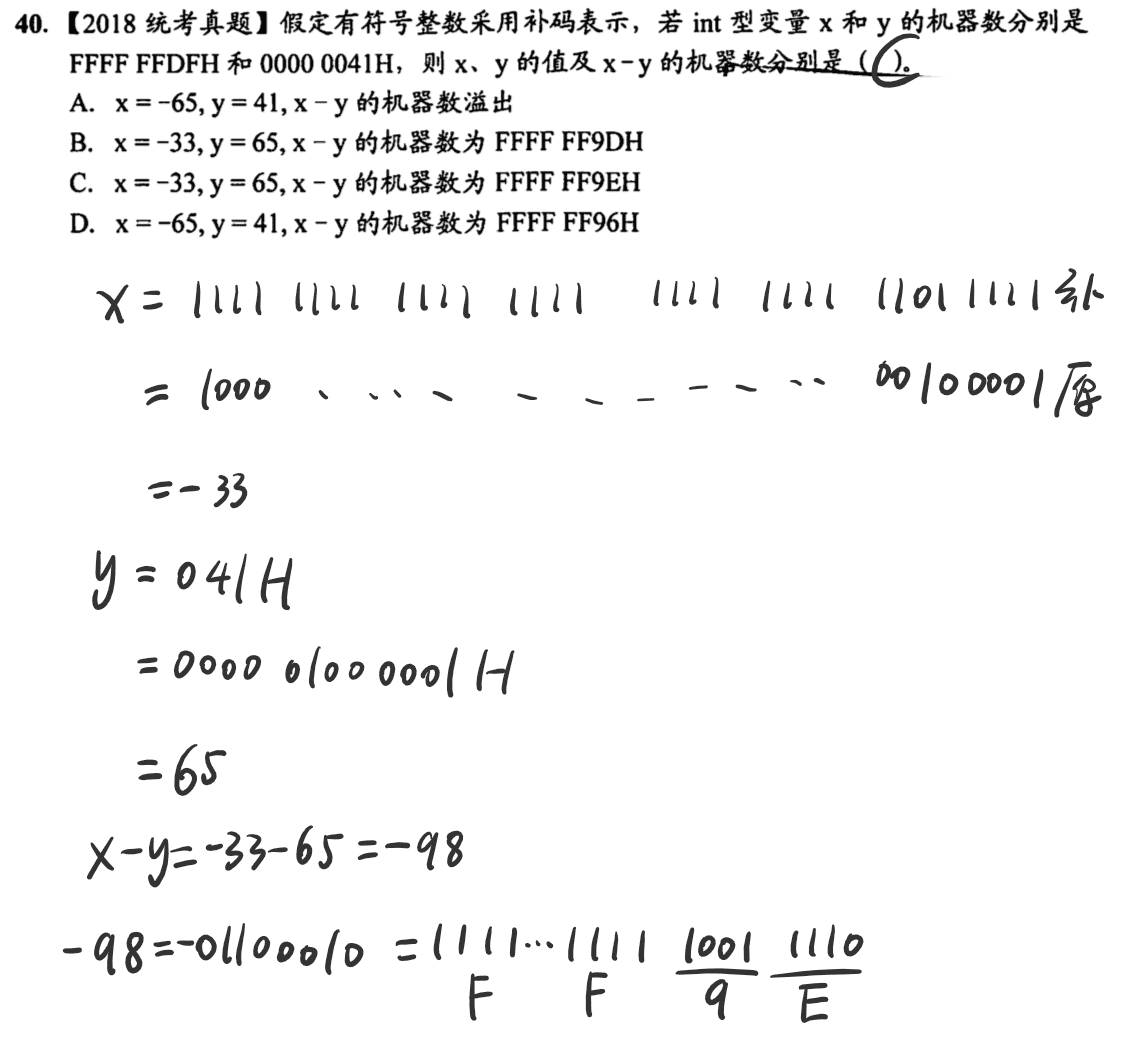 40. 【2018 统考真题】假定有符号整数采用补码表示，若 int 型变量 x 和 y 的机器数分别是
FFFF FFDFH 和 0000 0041H，则 x、y 的值及 x-y 的机器数分别是（C）。
A. x = -65, y = 41, x - y 的机器数溢出
B. x = -33, y = 65, x - y 的机器数为 FFFF FF9DH
C. x = -33, y = 65, x - y 的机器数为 FFFF FF9EH
D. x = -65, y = 41, x - y 的机器数为 FFFF FF96H
x = 1111 1111 1111 1111 1111 1111 1101 1111 补
= 1000 ... 00100001 原
= -33
y = 041H
= 0000 0100 0001 H
= 65
x-y = -33-65 = -98
-98 = -01100010 = 1111...1111 1001 1110
F F 9 E